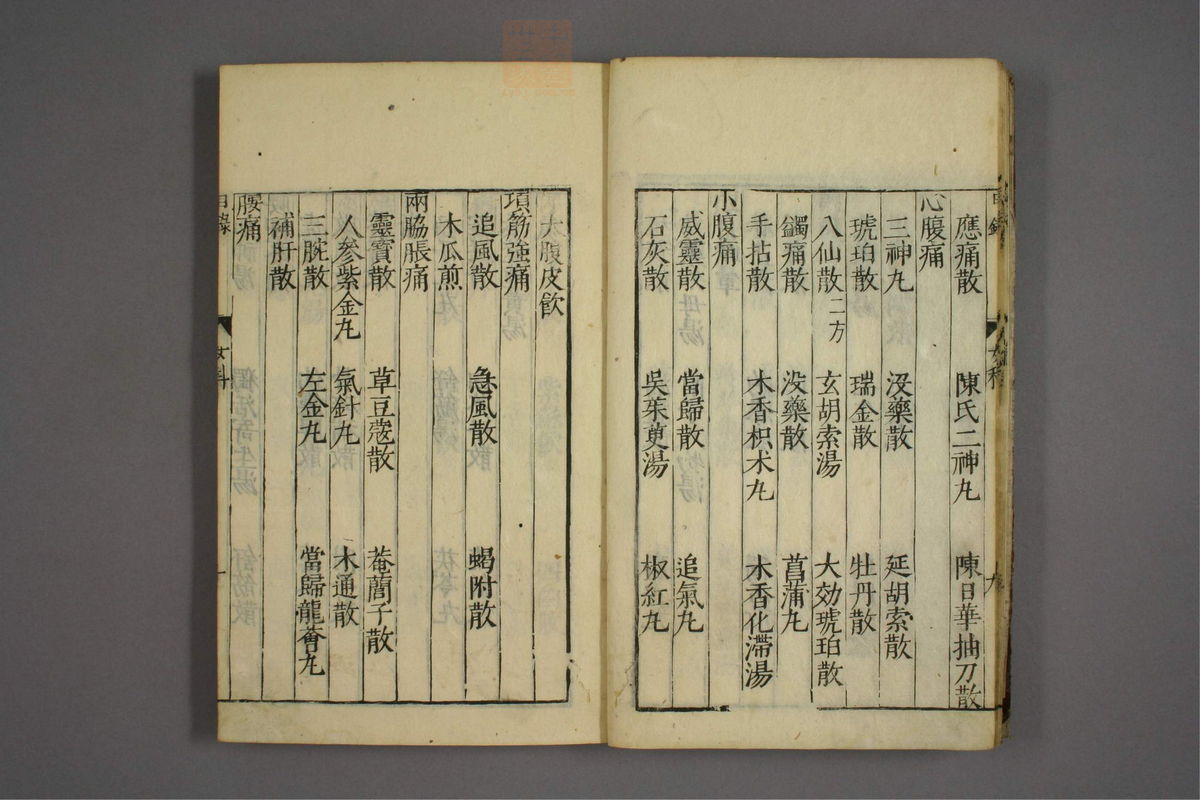 應痛散 陳氏二神丸 陳日華抽刀散
心腹痛
三神丸 沒藥散 延胡索散
琥珀散 瑞金散 牡丹散
八仙散二方 玄胡索湯 大効琥珀散
蠲痛散 没藥散 菖蒲丸
手拈散 木香枳朮丸 木香化滯湯
小腹痛
威靈散 當歸散 追氣丸
石灰散 吳茱萸湯 椒紅丸
大腹皮飲
項筋強痛
追風散 急風散 蝎附散
木瓜煎
兩脇脹痛
靈寶散 草豆蔻散 菴䕡子散
人參紫金丸 氣針丸 木通散
三脘散 左金丸 當歸龍薈丸
補肝散
腰痛
目錄 女科